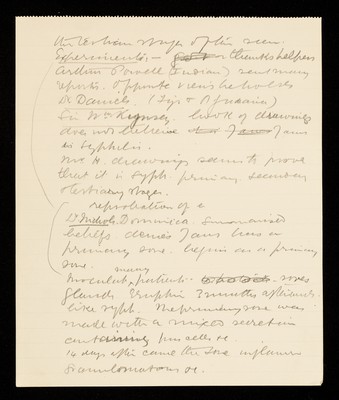 the Tertiary stages often seen.
Experiments — thanks helpers
Arthur Powell (Indian) sent many
reports. Opposite views he holds
Dr Daniels. (Fiji & B Guiana)
Sir Wm Kynsey book of drawings
does not believe Jaws
is Syphilis.
Mr H. drawings seem to prove
that it is Syph. primary secondary
& tertiary stages.
reprobation of a
Dr Nicholls. Dominica Summarised
beliefs. denies Jaws has a
primary sore. begins as a primary
sore. many
Inoculated patients. sores
glands Eruption 2 months afterwards
like syph. The primary sore was
made with a mixed secretion
containing pus cells &c
14 days after came the sore inflamed
Granulomatous &c.